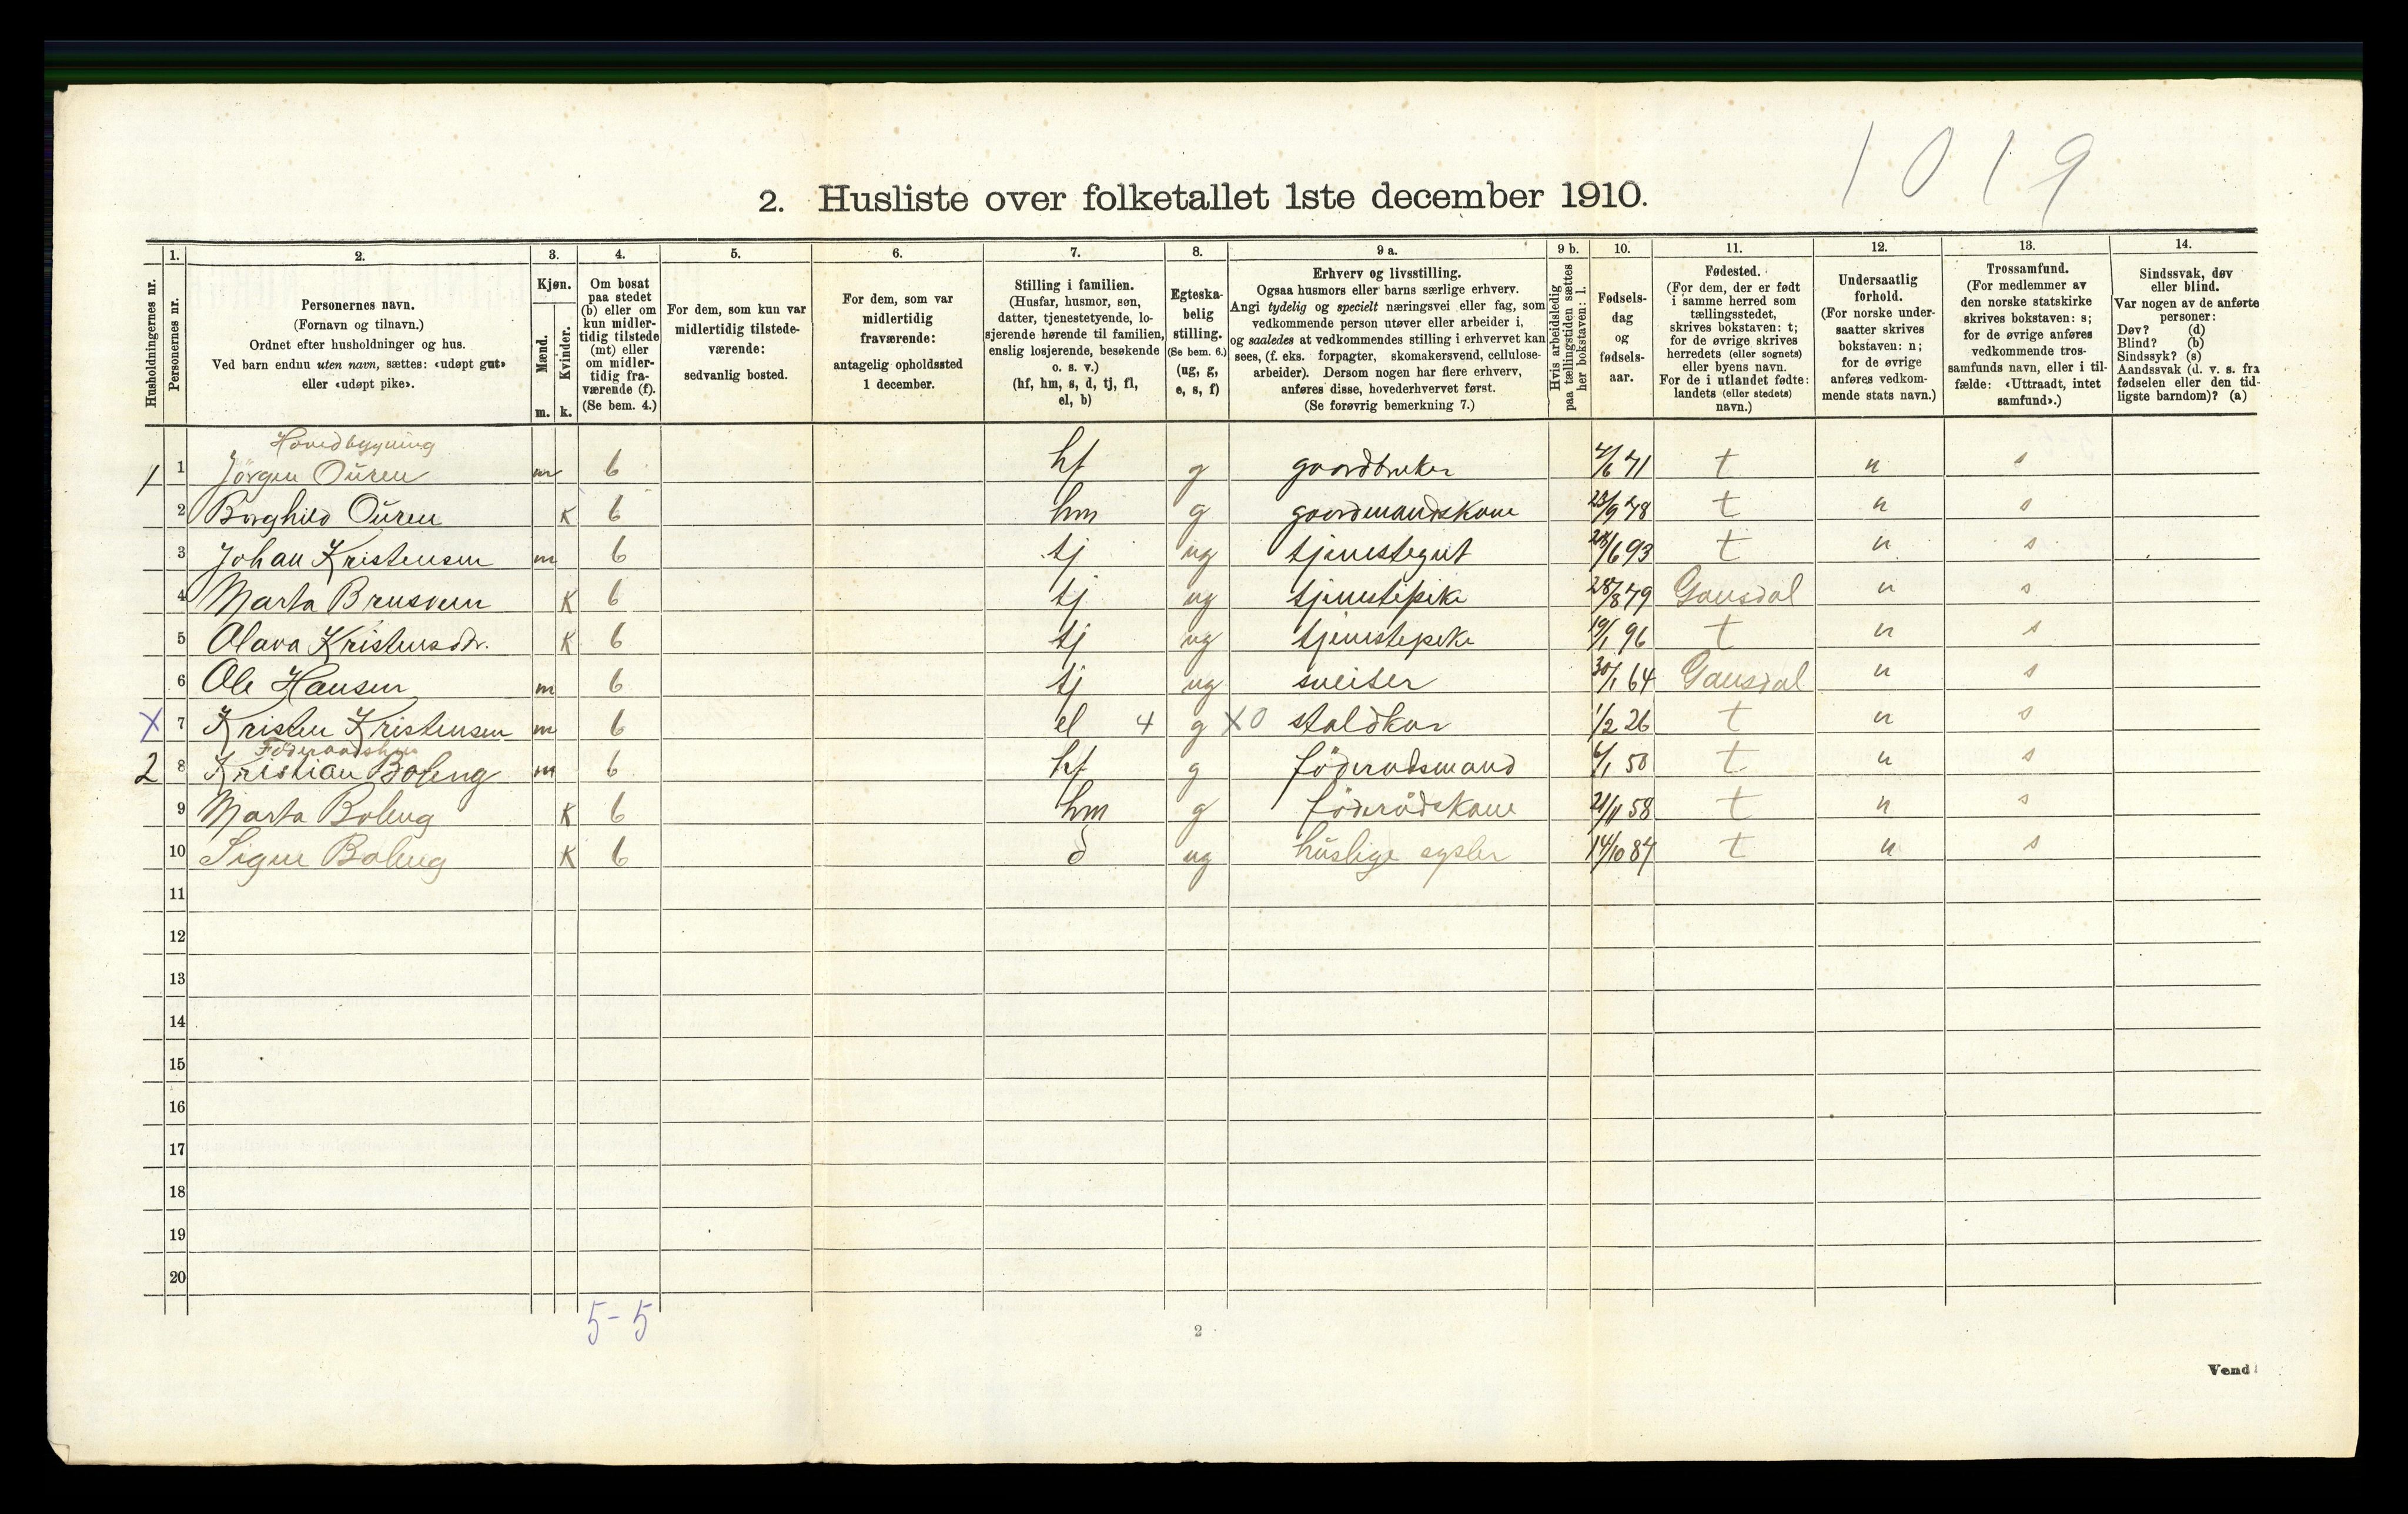 1019
2. Husliste over folketallet 1ste december 1910.
Husholdningernes nr.
1.
Personernes nr.
2.
Personernes navn.
(Fornavn og tilnavn.)
Ordnet efter husholdninger og hus.
Ved barn endnu uten navn, sættes: «udøpt gut»
eller «udøpt pike».
3.
Kjøn.
Mænd.
Kvinder.
m. k.
4.
Om bosat
paa stedet
(b) eller om
kun midler-
tidig tilstede
(mt) eller
om midler-
tidig fra-
værende (f).
(Se bem. 4.)
5.
For dem, som kun var
midlertidig tilstede-
værende:
sedvanlig bosted.
6.
For dem, som var
midlertidig
fraværende:
antagelig opholdssted
1 december.
7.
Stilling i familien.
(Husfar, husmor, søn,
datter, tjenestetyende, lo-
sjerende hørende til familien,
enslig losjerende, besøkende
o. s. v.)
(hf, hm, s, d, tj, fl,
el, b)
8.
Egteska-
belig
stilling.
(Se bem. 6.)
(ug, g,
e, s, f)
9 a.
Erhverv og livsstilling.
Ogsaa husmors eller barns særlige erhverv.
Angi tydelig og specielt næringsvei eller fag, som
vedkommende person utøver eller arbeider i,
og saaledes at vedkommendes stilling i erhvervet kan
sees, (f. eks. forpagter, skomakersvend, cellulose-
arbeider). Dersom nogen har flere erhverv,
anføres disse, hovederhvervet først.
(Se forøvrig bemerkning 7.)
9 b.
Hvis arbeidsledig
paa tællingstiden sættes
her bokstaven: l.
10.
Fødsels-
dag
og
fødsels-
aar.
11.
Fødested.
(For dem, der er født
i samme herred som
tællingsstedet,
skrives bokstaven: t;
for de øvrige skrives
herredets (eller sognets)
eller byens navn.
For de i utlandet fødte:
landets (eller stedets)
navn.)
12.
Undersaatlig
forhold.
(For norske under-
saatter skrives
bokstaven: n;
for de øvrige
anføres vedkom-
mende stats navn.)
13.
Trossamfund.
(For medlemmer av
den norske statskirke
skrives bokstaven: s;
for de øvrige anføres
vedkommende tros-
samfunds navn, eller i til-
fælde: «Uttraadt, intet
samfund».)
14.
Sindssvak, døv
eller blind.
Var nogen av de anførte
personer:
Døv? (d)
Blind? (b)
Sindssyk? (s)
Aandssvak (d. v. s. fra
fødselen eller den tid-
ligste barndom)? (a)
Hovedbygning
1 1 Jörgen Ouren m b hf g gaardbruker 4/6 71 t n s
2 Borghild Ouren K b hm g gaardmandskone 23/9 78 t n s
3 Johan Kristensen m b tj ug tjenestegut 28/6 93 t n s
4 Marta Brusveen K b tj ug tjenestepike 28/8 79 Gausdal n s
5 Olava Kristensdtr. K b tj ug tjenestepike 19/1 96 t n s
6 Ole Hansen m b tj ug sveiser 30/1 64 Gausdal n s
X 7 Kristen Kristensen m b el 4 g X0 staldkar 1/2 26 t n s
Föderaadshus
2 8 Kristian Boleng m b hf g föderadsmand 6/1 50 t n s
9 Marta Boleng K b hm g föderådskone 21/11 58 t n s
10 Signe Boleng K b d ug huslige sysler 14/10 87 t n s
11
12
13
14
15
16
17
18
19
20
5-5
2
Vend!